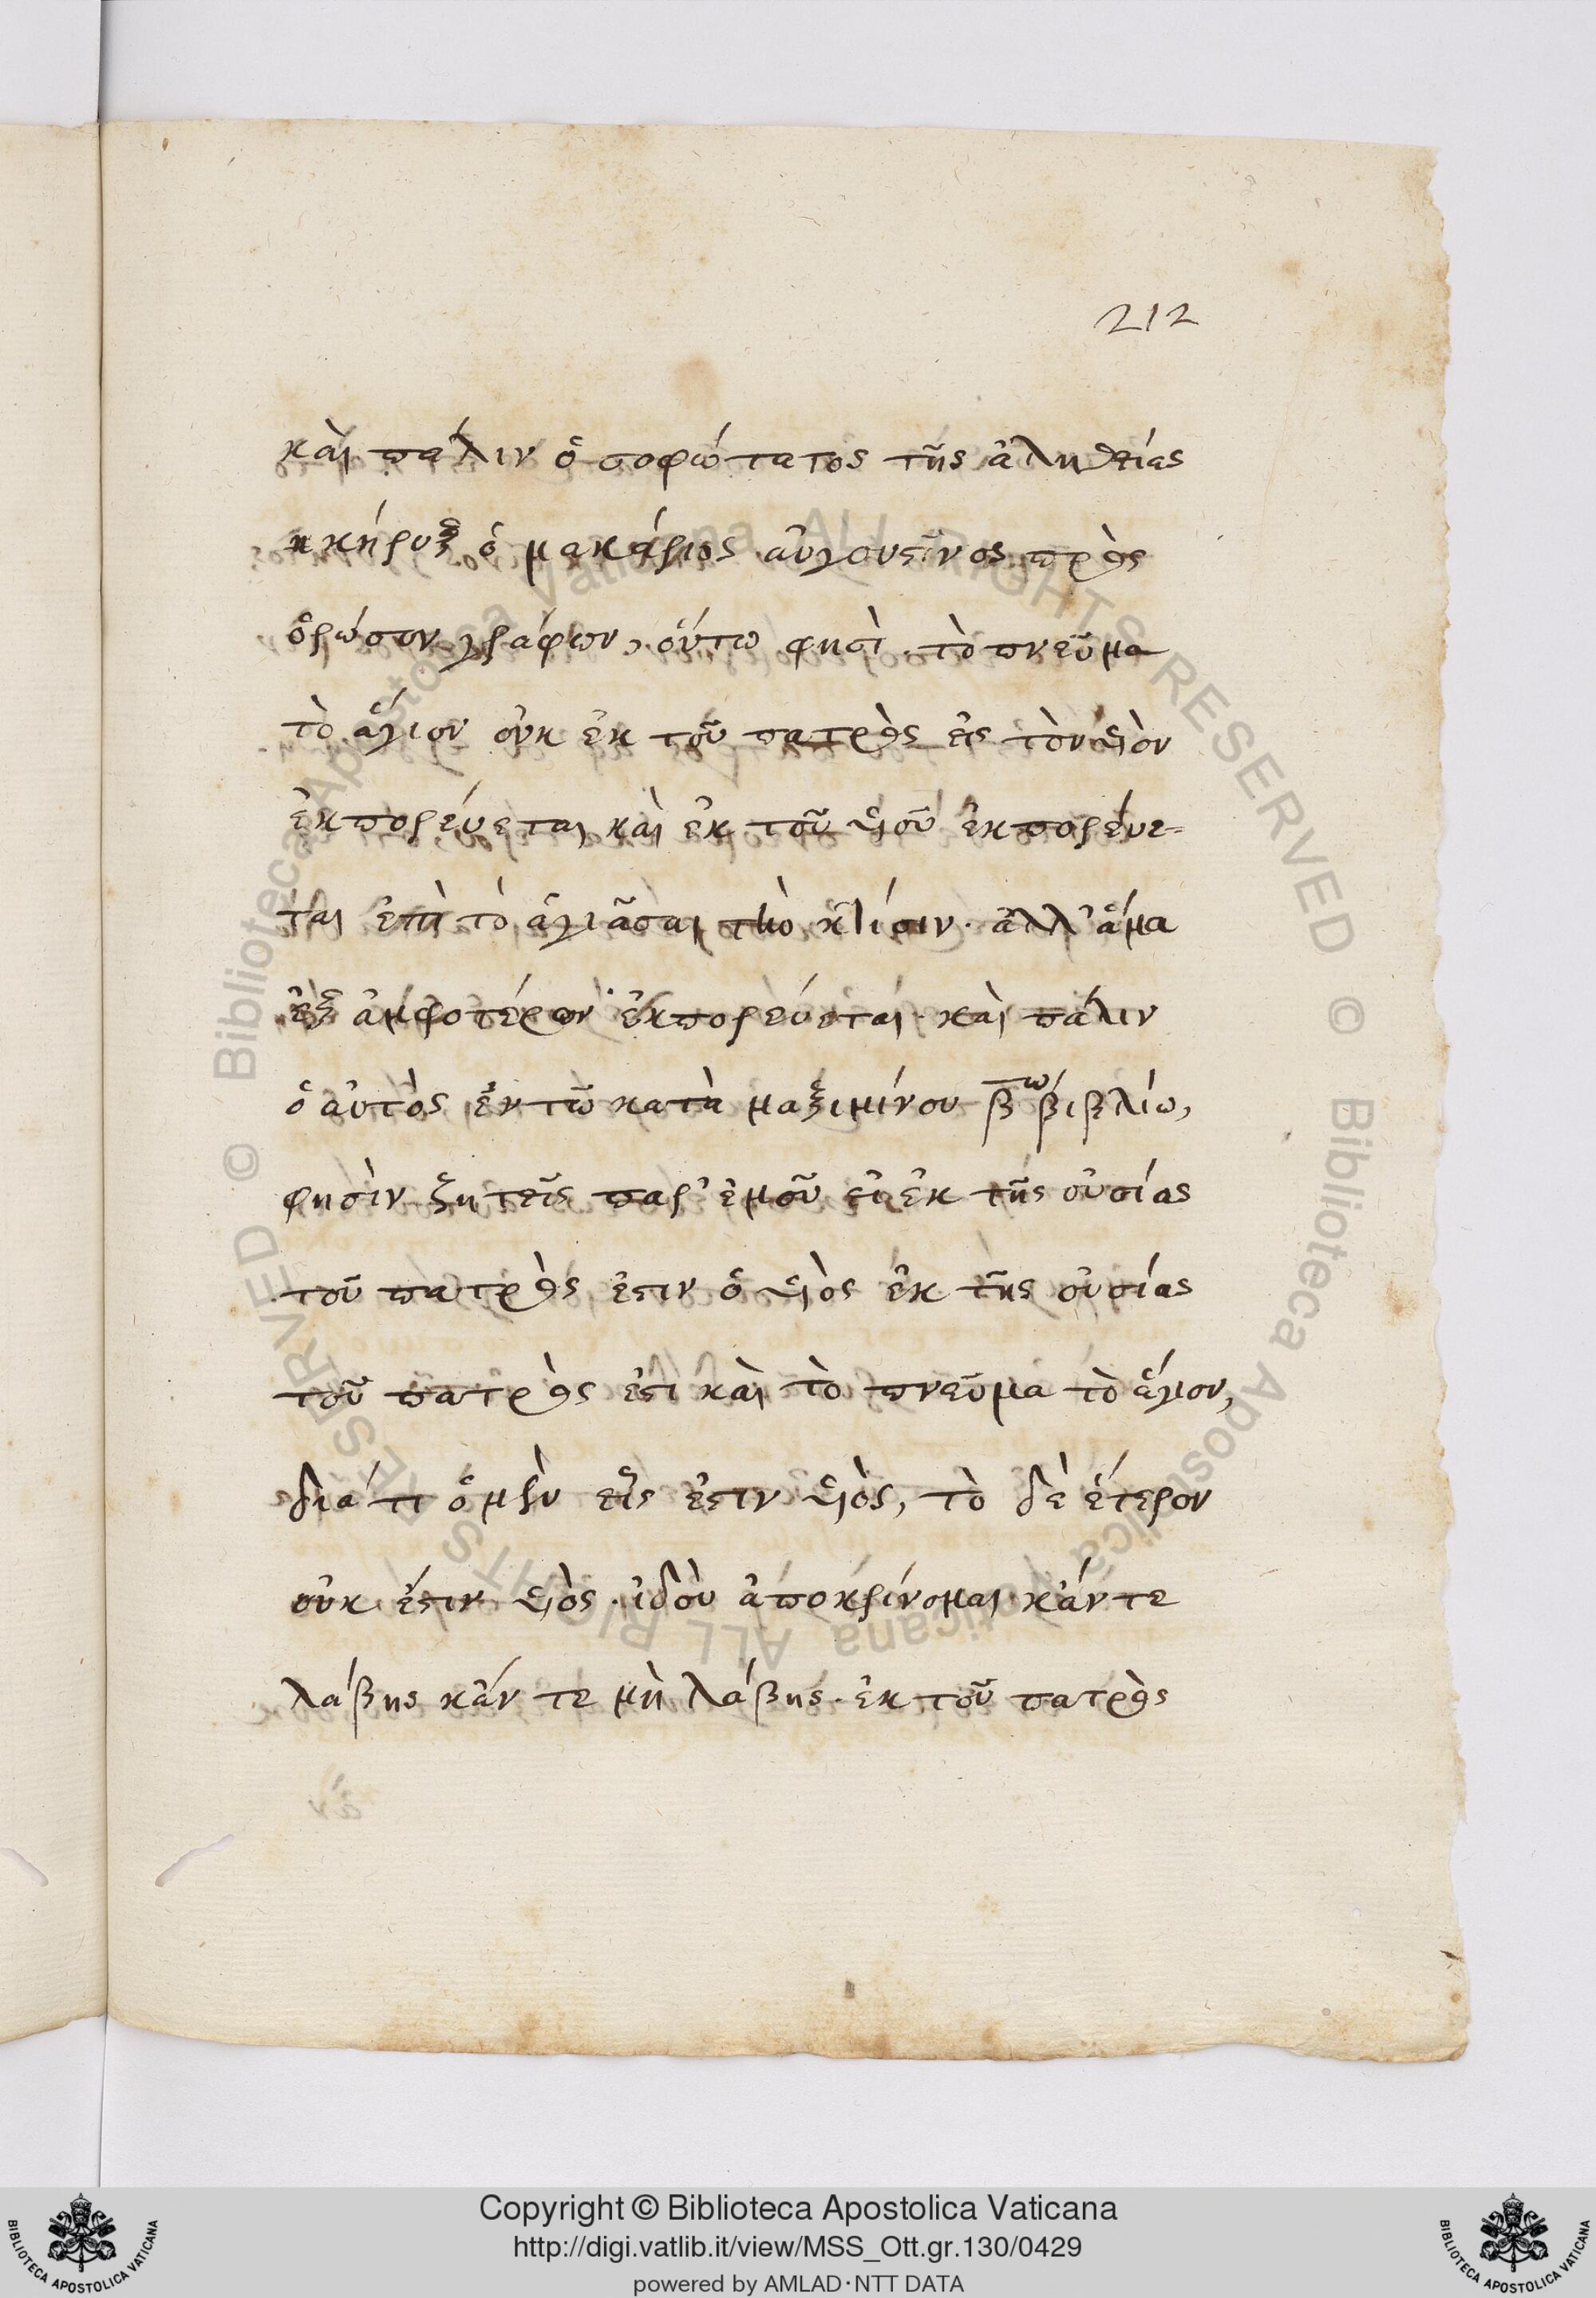 212
καὶ πάλιν ὁ σοφώτατος τῆς ἀληθείας
κήρυξ ὁ μακάριος αὐγουστῖνος πρὸς
ὀρώσιον γράφων, οὕτω φησὶ. τὸ πνεῦμα
τὸ ἅγιον οὐκ ἐκ τοῦ πατρὸς εἰς τὸν υἱὸν
ἐκπορεύεται καὶ ἐκ τοῦ υἱοῦ ἐκπορεύε-
ται ἐπὶ τὸ ἁγιᾶσαι τὴν κτίσιν. ἀλλ' ἅμα
ἐξ ἀμφοτέρων ἐκπορεύεται. καὶ πάλιν
ὁ αὐτὸς ἐν τῶ κατὰ μαξιμίνου β̅ῳ βιβλίω,
φησὶν ζητεῖς παρ' ἐμοῦ εἰ ἐκ τῆς οὐσίας
τοῦ πατρὸς ἐστιν ὁ υἱὸς ἐκ τῆς οὐσίας
τοῦ πατρὸς ἐστι καὶ τὸ πνεῦμα τὸ ἅγιον,
διά τι ὁ μὲν εἷς ἐστιν υἱὸς, τὸ δὲ ἕτερον
οὐκ ἔστιν υἱὸς. ἰδοὺ ἀποκρίνομαι κάν τε
λάβης κάν τε μὴ λάβης. ἐκ τοῦ πατρὸς
Copyright © Biblioteca Apostolica Vaticana
http://digi.vatlib.it/view/MSS_Ott.gr.130/0429
powered by AMLAD·NTT DATA
BIBLIOTECA APOSTOLICA VATICANA
BIBLIOTECA APOSTOLICA VATICANA
© Biblioteca Apostolica Vaticana ALL RIGHTS RESERVED © Biblioteca Apostolica Vaticana ALL RIGHTS RESERVED